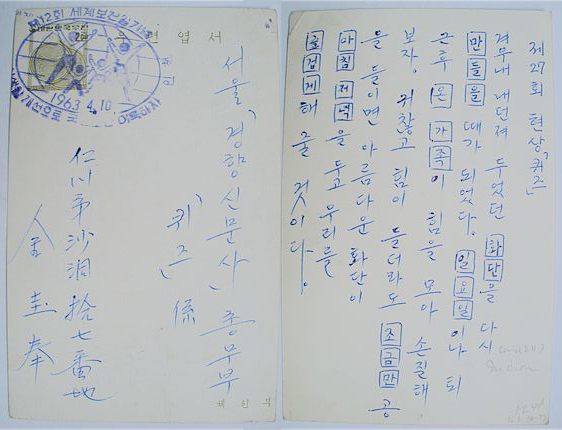 제12회 세계보건일기념
1963. 4. 10
우편엽서
서울, 경향신문사, 총무부
「퀴즈」係
仁川市沙洞拾七番地
金圭奉
체신부
제27회 현상「퀴즈」
겨우내 내던져 두었던 화단을 다시
만들을 때가 되었다. 일요일이나 퇴
근후 온 가족이 힘을 모아 손질해
보장. 귀찮고 힘이 들더라도 조금만 공
을 들이면 아름다운 화단이
아침 저녁을 두고 우리를
즐겁게해 줄 것이다.